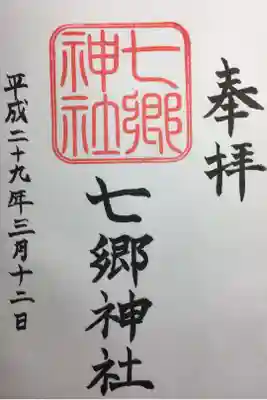 奉拝
七郷
神社
七郷神社
平成二十九年三月十二日